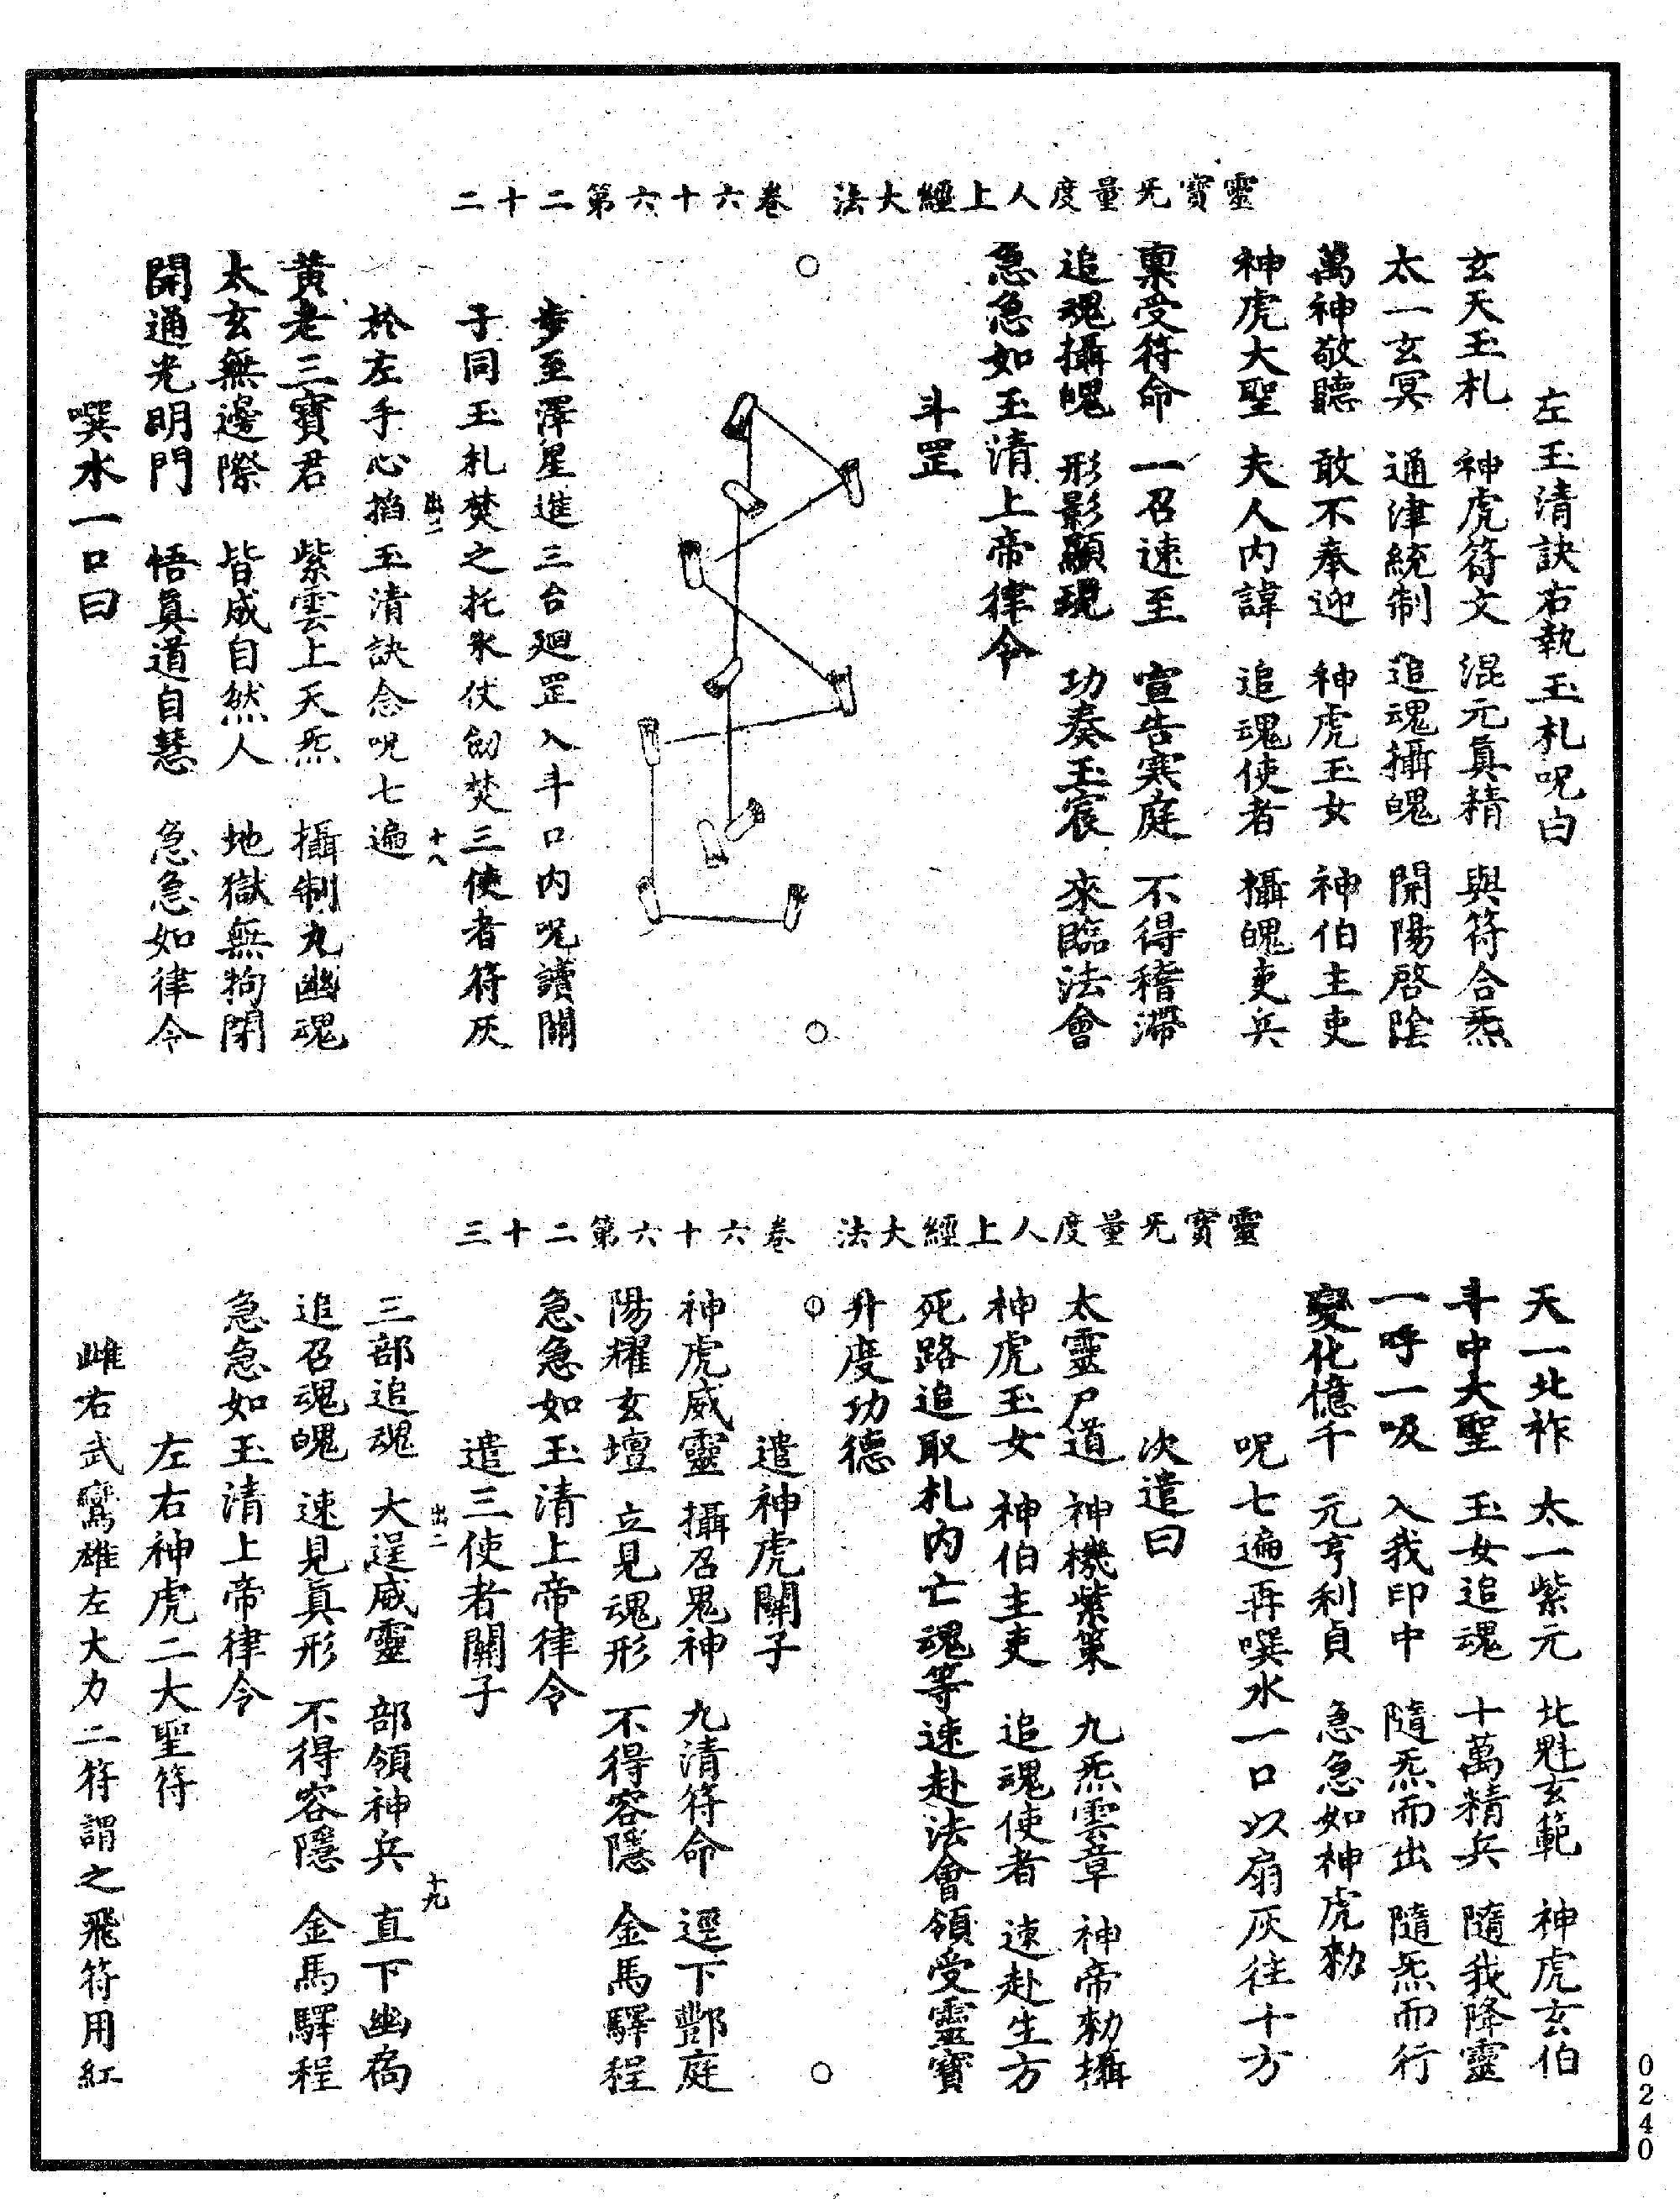 靈寶旡量度人上經大法 卷六十六第二十二
左玉清訣右執玉札呪白
玄天玉札 神虎符文 混元真精 與符合炁
太一玄冥 通津統制 追魂攝魄 開陽啓陰
萬神敬聽 敢不奉迎 神虎玉女 神伯主吏
神虎大聖 夫人内諱 追魂使者 攝魄吏兵
稟受符命 一召速至 宣告寒庭 不得稽滯
追魂攝魄 形影顯現 功奏玉宸 來臨法會
急急如玉清上帝律令
斗罡
步至澤星進三台廻罡入斗口内呪讀關
子同玉札焚之托氷仗劒焚三使者符灰
出二 十八
於左手心掐玉清訣念呪七遍
黃老三寶君 紫雲上天炁 攝制九幽魂
太玄無邊際 皆成自然人 地獄無拘閉
開通光明門 悟真道自慧 急急如律令
噀水一口曰
靈寶旡量度人上經大法 卷六十六第二十三
天一北祚 太一紫元 北魁玄範 神虎玄伯
斗中大聖 玉女追魂 十萬精兵 隨我降靈
一呼一吸 入我印中 隨炁而出 隨炁而行
變化億千 元亨利貞 急急如神虎勑
呪七遍再噀水一口以扇灰往十方
次遣曰
太靈尸道 神機紫策 九炁雲章 神帝勑攝
神虎玉女 神伯主吏 追魂使者 速赴生方
死路追取札内亡魂等速赴法會領受靈寶
升度功德
遣神虎關子
神虎威靈 攝召鬼神 九清符命 逕下酆庭
陽耀玄壇 立見魂形 不得容隱 金馬驛程
急急如玉清上帝律令
遣三使者關子
出二 十九
三部追魂 大逞威靈 部領神兵 直下幽扃
追召魂魄 速見真形 不得容隱 金馬驛程
急急如玉清上帝律令
左右神虎二大聖符
雌右武鸞雄左大力二符謂之飛符用紅
0240